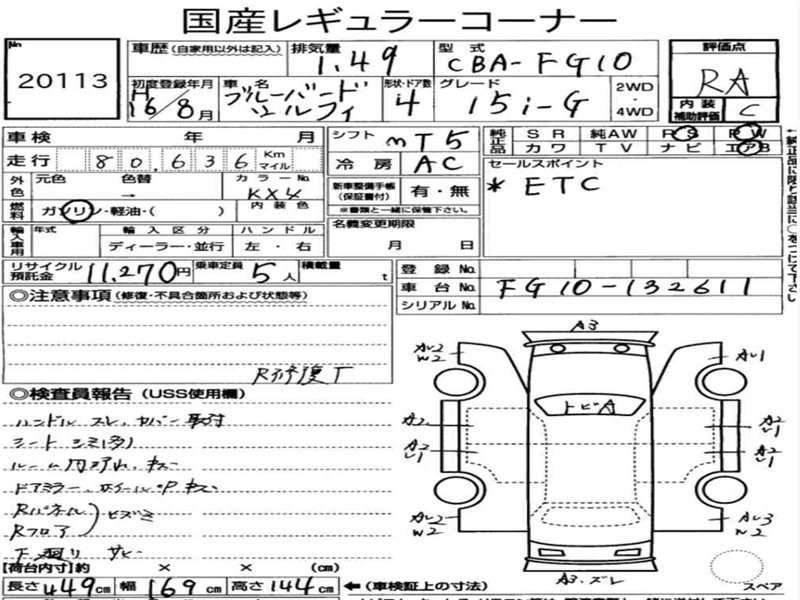 国産レギュラーコーナー
No 20113
車歴 (自家用以外は記入)
排気量 1.49
型式 CBA-FG10
初度登録年月 H16/8月
車名 ブルーバードシルフィ
形状・ドア数 4
グレード 15i-G
2WD・4WD
評価点 RA
内装補助評価 C
車検 年 月
シフト mT5
純正品 SR 純AW PS PW
カワ TV ナビ エアB
走行 80,636 Km マイル
冷房 AC
セールスポイント
* ETC
外色 元色 → 色替
カラーNo. KX4
内装色
新車整備手帳(保証書付) 有・無
※書類と一緒に保管下さい。
燃料 ガソリン・軽油・( )
名義変更期限
月 日
輸入車用 年式 輸入区分 ハンドル
ディーラー・並行 左・右
リサイクル預託金 11,270円
乗車定員 5人
積載量 t
登録No.
車台No. FG10-132611
シリアルNo.
◎注意事項(修復・不具合箇所および状態等)
R修復T
◎検査員報告(USS使用欄)
ハンドル スレ、カバー取付
シート シミ(多)
ルーム内汚れ、キズ
ドアミラー、ホイールキャP キズ
Rパネル
Rフロア ヒズミ
下廻り サビ
【荷台内寸】約 × × (cm)
長さ449cm 幅169cm 高さ144cm ←(車検証上の寸法)
A3
トビA
Aレ1
A2
レ1
A2
レ1
Aレ2
W2
Aレ3
W2
A3.ズレ
スペア